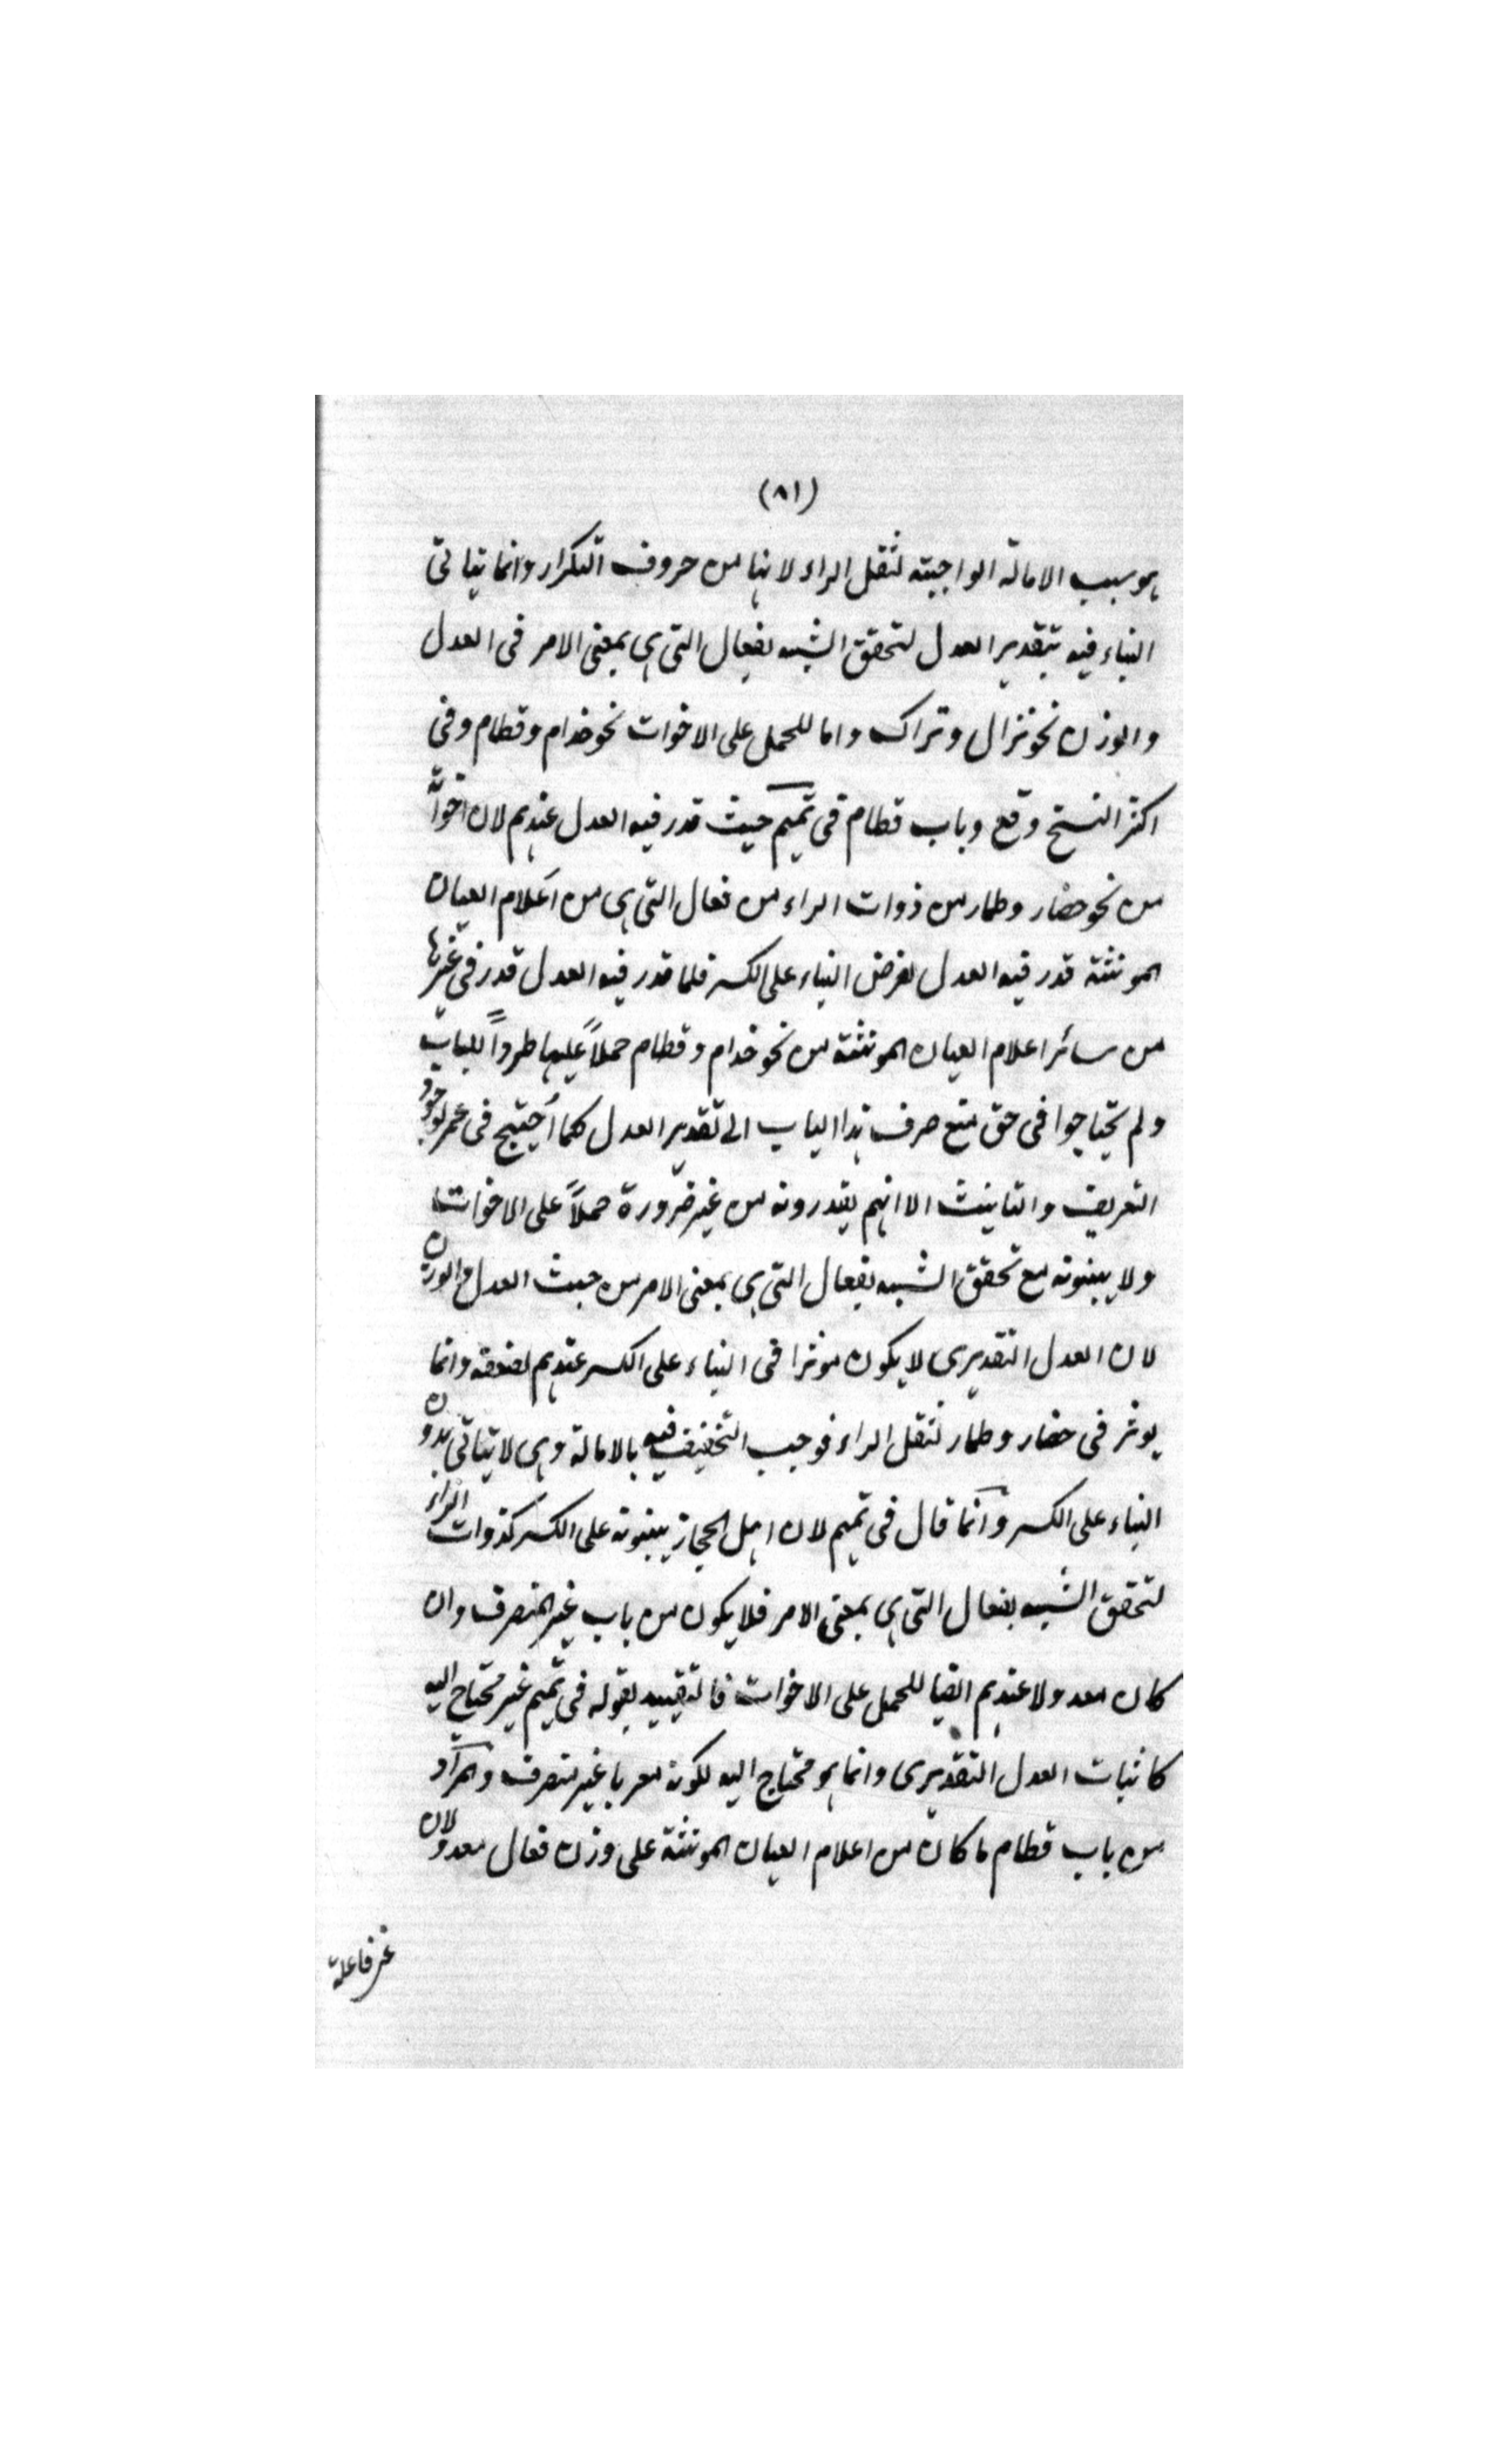 (٨١)
هو سبب الامالة الواجبة لثقل الراء لانها من حروف التكرار وانما يتاتى
البناء فيه بتقدير العدل لتحقق الشبه بفعال التى هى بمعنى الامر فى العدل
والوزن نحو نزال وتراك واما للحمل على الاخوات نحو خدام وقطام وفى
اكثر النسخ وقع وباب قطام فى تميم حيث قدر فيه العدل عندهم لان اخواته
من نحو حضار وطمار من ذوات الراء من فعال التى هى من اعلام العيان
المونثة قدر فيه العدل لغرض البناء على الكسر فلما قدر فيه العدل قدر فى غيرها
من سائر اعلام العيان المونثة من نحو خدام وقطام حملاً عليها طرداً للباب
ولم يحتاجوا فى حق منع صرف هذا الباب الى تقدير العدل كما أحتيج فى عمر لوجود
التعريف والتانيث الا انهم يقدرونه من غير ضرورة حملاً على الاخوات
ولا يبنونه مع تحقق الشبه بفعال التى هى بمعنى الامر من حيث العدل والوزن
لان العدل التقديرى لا يكون موثرا فى البناء على الكسر عندهم لضعفه وانما
يوثر فى حضار وطمار لثقل الراء فوجب التخفيف فيه بالامالة وهى لا يتاتى بدون
البناء على الكسر وانما قال فى تميم لان اهل الحجاز يبنونه على الكسر كذوات الراء
لتحقق الشبه بفعال التى هى بمعنى الامر فلا يكون من باب غير المنصرف وان
كان معدولا عندهم ايضا للحمل على الاخوات فالتقييد بقوله فى تميم غير محتاج اليه
كاثبات العدل التقديرى وانما هو محتاج اليه لكونه معربا غير منصرف والمراد
من باب قطام ما كان من اعلام العيان المونثة على وزن فعال معدولان
عن فاعلة